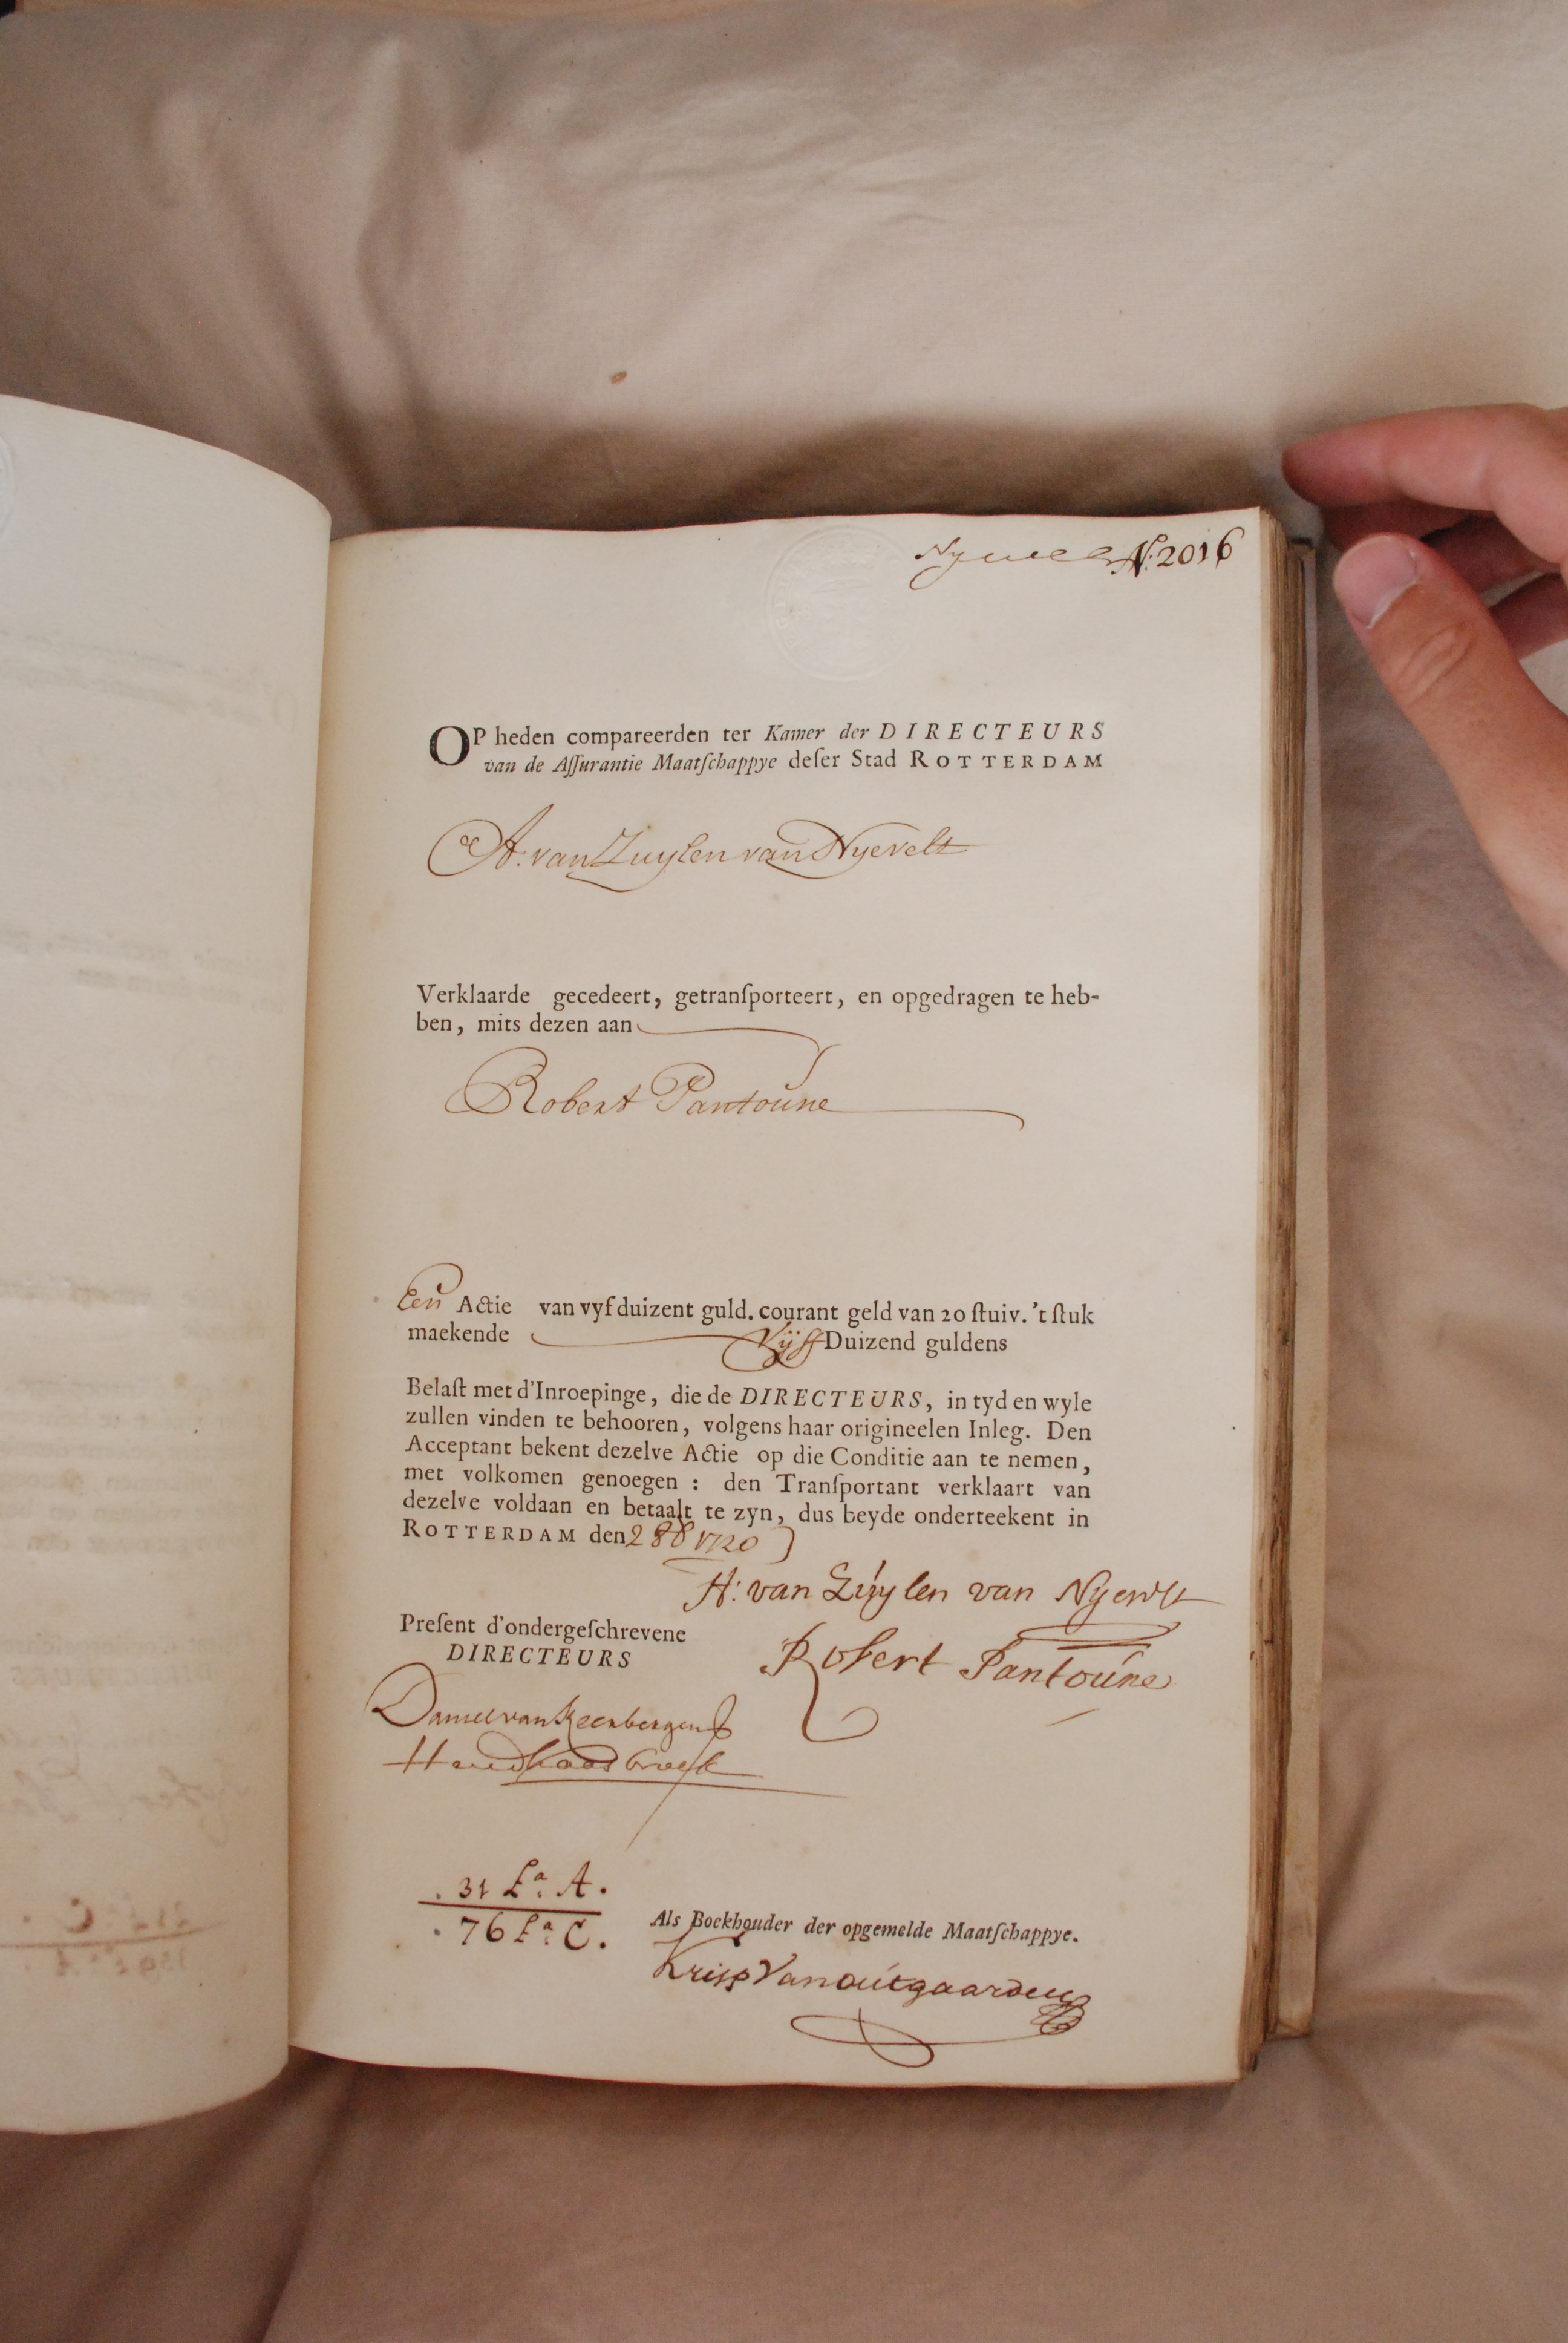 N.º 2016
OP heden compareerden ter Kamer der DIRECTEURS
van de Aſſurantie Maatſchappye deſer Stad ROTTERDAM
A: van Zuylen van Nyevelt
Verklaarde gecedeert, getranſporteert, en opgedragen te heb-
ben, mits dezen aan
Robert Pantoune
Een Actie van vyf duizent guld. courant geld van 20 ſtuiv. 't ſtuk
maekende Vijff Duizend guldens
Belaſt met d'Inroepinge, die de DIRECTEURS, in tyd en wyle
zullen vinden te behooren, volgens haar origineelen Inleg. Den
Acceptant bekent dezelve Actie op die Conditie aan te nemen,
met volkomen genoegen : den Tranſportant verklaart van
dezelve voldaan en betaalt te zyn, dus beyde onderteekent in
ROTTERDAM den 2 8b 1720
H: van Zuylen van Nyevelt
Preſent d'ondergeſchrevene
DIRECTEURS
Robert Pantoune
Daniel van
31 La. A.
76 La. C.
Als Boekhouder der opgemelde Maatſchappye.
Kriss Van outgaarden